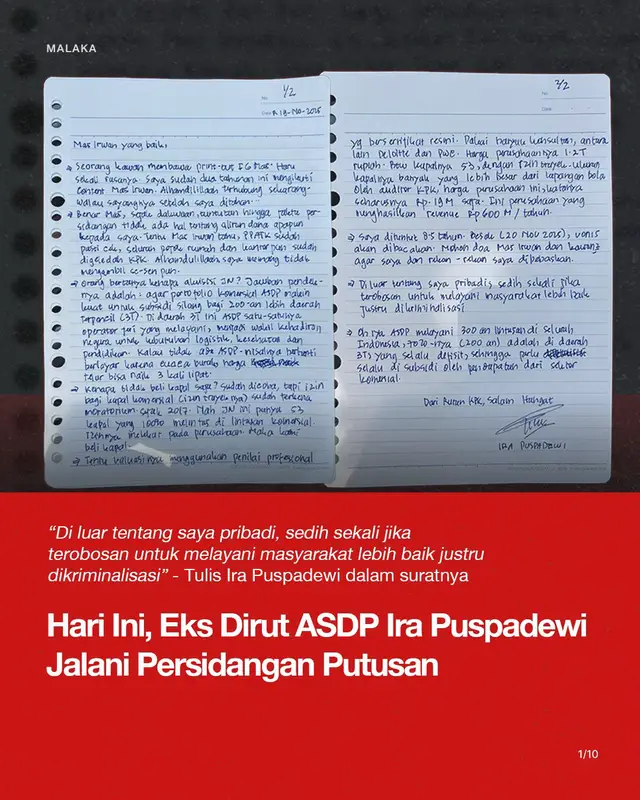 MALAKA
No. 1/2
Date 18-Nov-2025
Mas Irwan yang baik,
→ Seorang kawan membawa print-out IG Mas. Haru
sekali rasanya. Saya sudah dua tahunan ini mengikuti
content Mas Irwan. Alhamdulillaah terhubung sekarang-
walau sayangnya setelah saya ditahan...
→ Benar Mas, sejak dakwaan, tuntutan hingga fakta per-
sidangan tidak ada hal tentang aliran dana apapun
kepada saya. Tentu Mas Irwan tahu, PPATK sudah
pasti cek, seluruh rumah dan kantor pun sudah
digledah KPK. Alhamdulillaah saya memang tidak
mengambil se-sen pun.
→ Orang bertanya kenapa akuisisi JN? Jawaban pendek-
nya adalah: agar portofolio komersial ASDP makin
kuat untuk subsidi silang bagi 200-an lebih daerah
terpencil (3T). Di daerah 3T ini ASDP satu-satunya
operator feri yang melayani, menjadi wakil kehadiran
negara untuk kebutuhan logistik, kesehatan dan
pendidikan. Kalau tidak ada ASDP - misalnya berhenti
berlayar karena cuaca buruk harga
telor bisa naik 3 kali lipat.
→ Kenapa tidak beli kapal saja? sudah dicoba, tapi izin
bagi kapal komersial (izin trayeknya) sudah terkena
moratorium sejak 2017. Nah JN ini punya 53
kapal yang 100% melintas di lintasan komersial.
Izinnya melekat pada perusahaan. Maka kami
beli kapal
→ Tentu valuasinya menggunakan penilai profesional
No. 2/2
Date
yg bersertifikat resmi. Pakai banyak konsultan, antara
lain Deloitte dan PWC. Harga perusahaannya 1.2T
rupiah. Beli kapalnya 53, dengan izin trayek. Ulang
kapalnya banyak yang lebih besar dari lapangan bola
oleh auditor KPK, harga perusahaan ini katanya
seharusnya Rp. 19 M saja. Ini perusahaan yang
menghasilkan revenue Rp 600 M / tahun.
→ Saya dituntut 8.5 tahun. Besok (20 Nov 2025), vonis
akan dibacakan. Mohon doa Mas Irwan dan kawan2
agar saya dan rekan-rekan saya dibebaskan.
→ Di luar tentang saya pribadi, sedih sekali jika
terobosan untuk melayani masyarakat lebih baik
justru dikriminalisasi
→ Oh iya ASDP melayani 300 an lintasan di seluruh
Indonesia. 70% -nya (200 an) adalah di daerah
3T yang selalu defisit, sehingga perlu
selalu di subsidi oleh pendapatan dari sektor
komersial.
Dari Rutan KPK, Salam Hangat
IRA PUSPADEWI
“Di luar tentang saya pribadi, sedih sekali jika
terobosan untuk melayani masyarakat lebih baik justru
dikriminalisasi” - Tulis Ira Puspadewi dalam suratnya
Hari Ini, Eks Dirut ASDP Ira Puspadewi
Jalani Persidangan Putusan
1/10